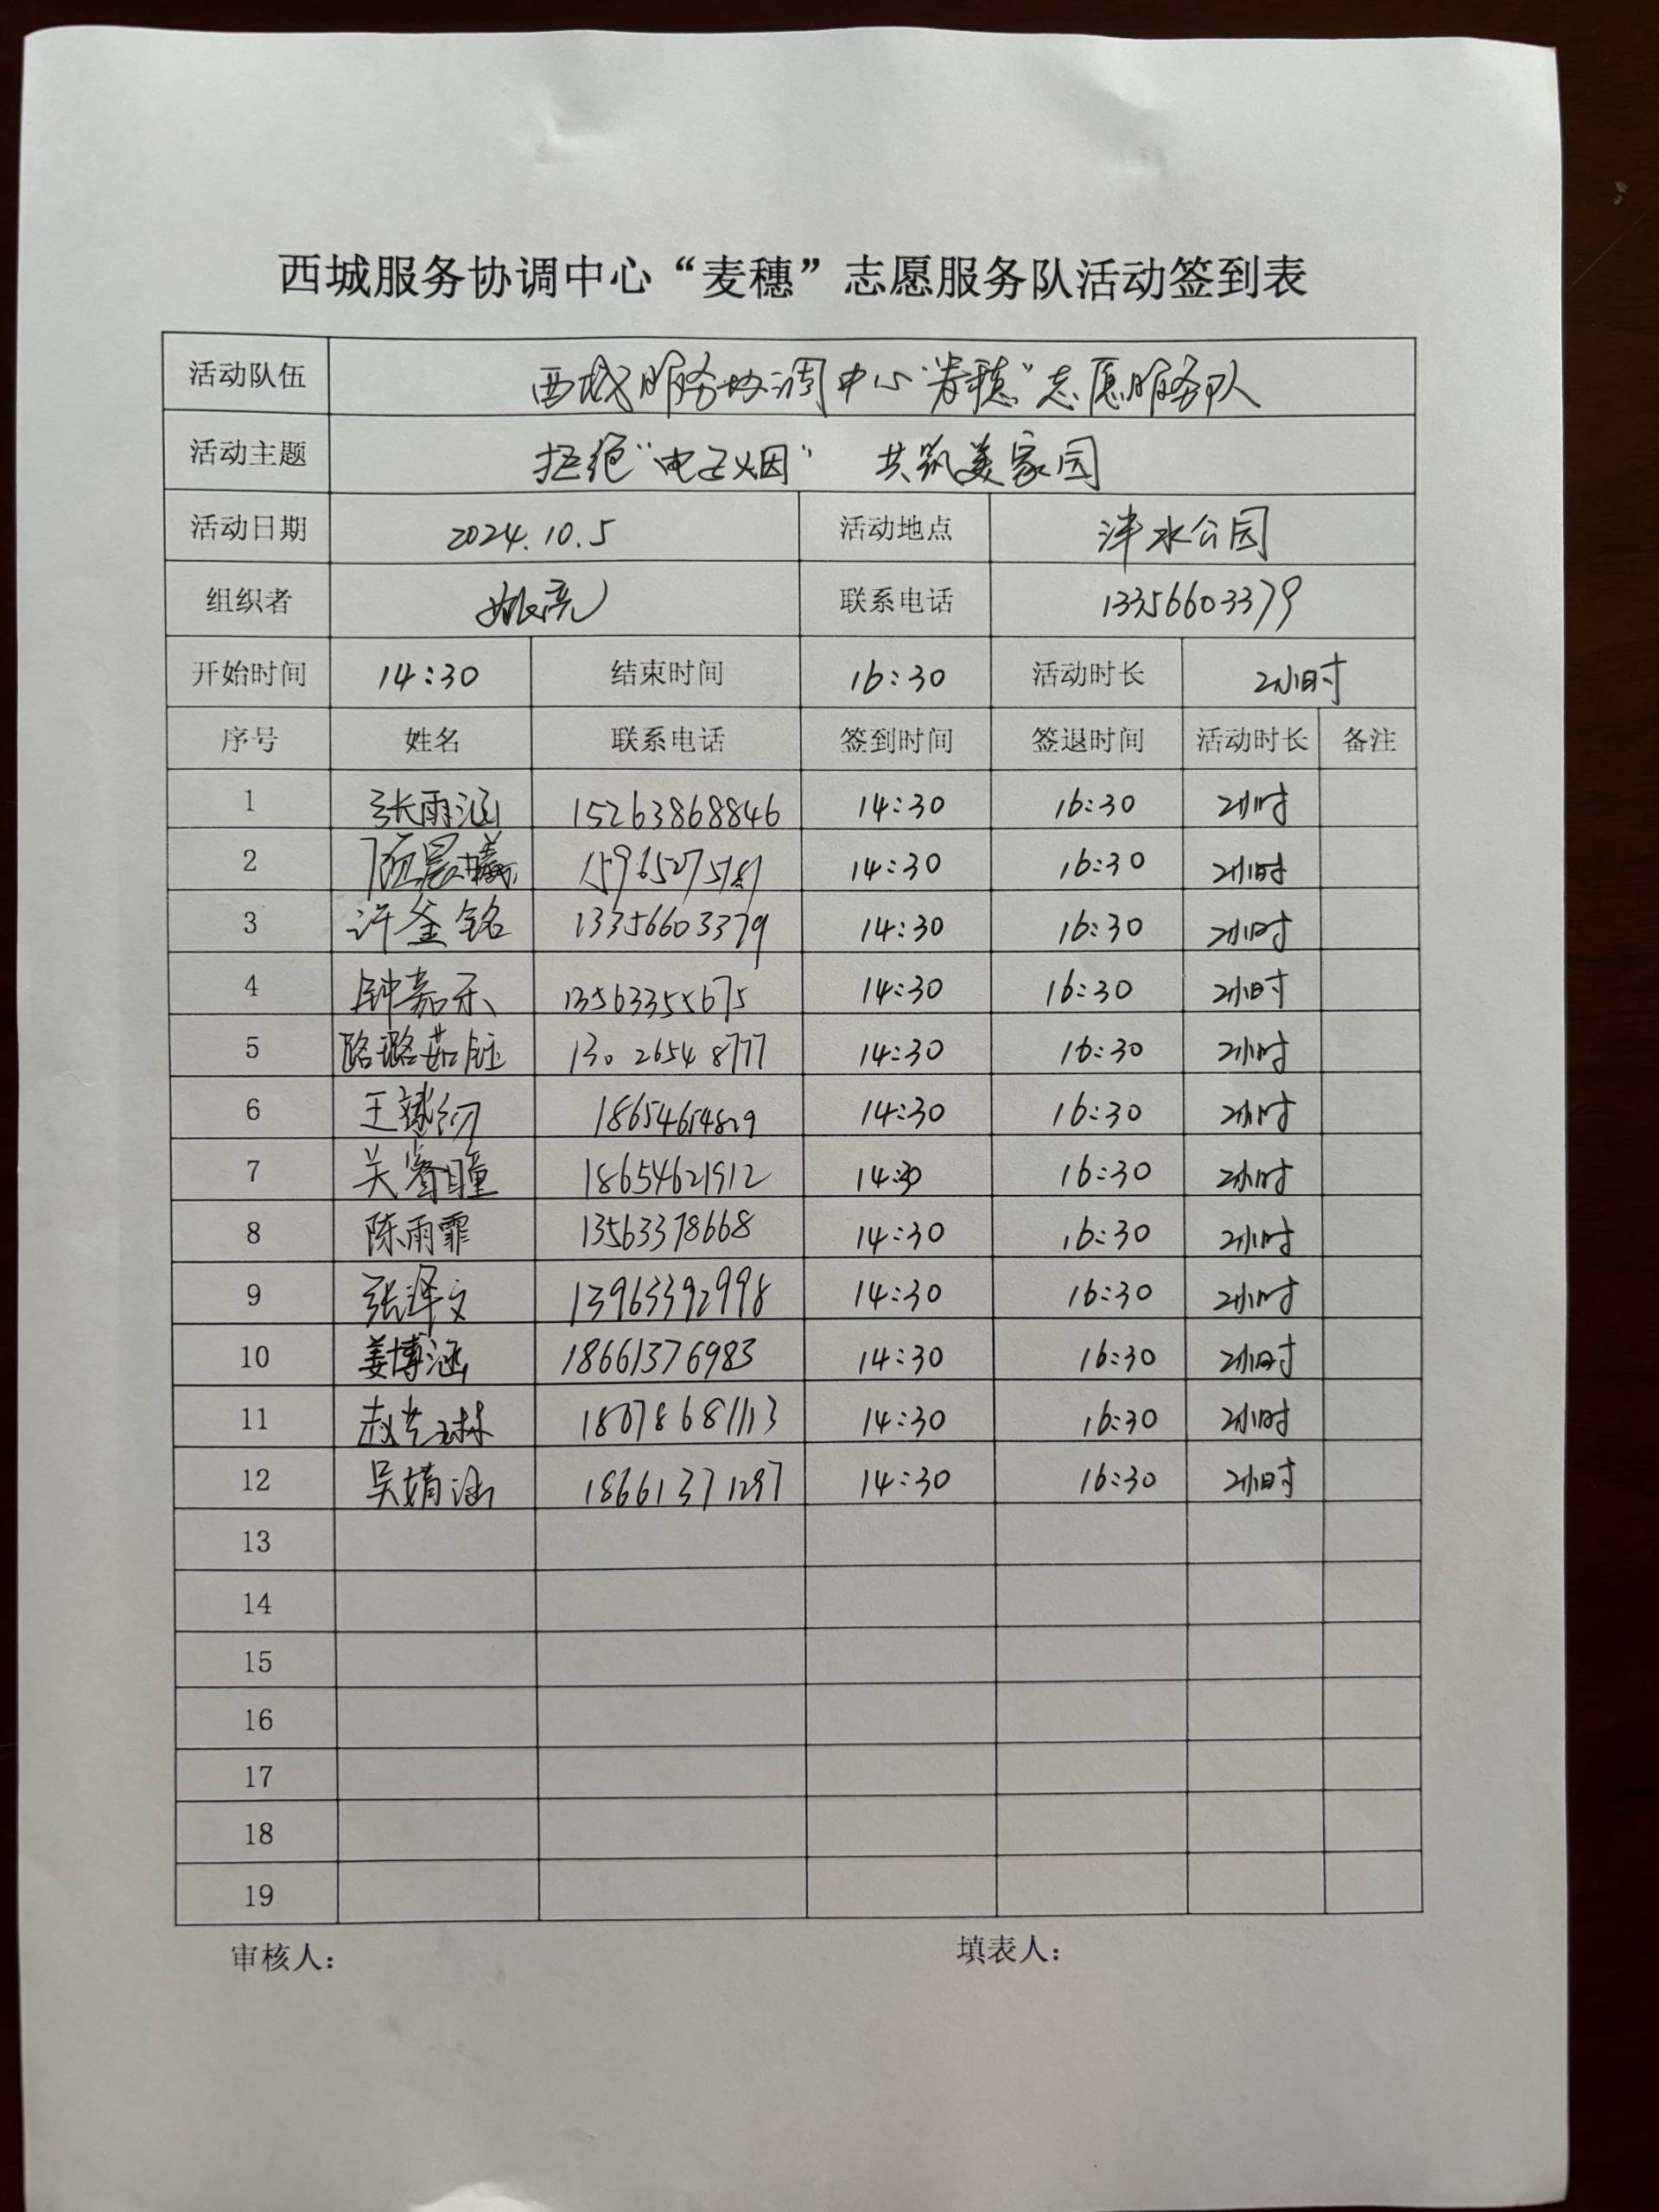 西城服务协调中心“麦穗”志愿服务队活动签到表
活动队伍 西城服务协调中心“麦穗”志愿服务队
活动主题 拒绝“电子烟” 共筑美家园
活动日期 2024.10.5 活动地点 泮水公园
组织者 姚亮 联系电话 13356603379
开始时间 14:30 结束时间 16:30 活动时长 2小时
序号 姓名 联系电话 签到时间 签退时间 活动时长 备注
1 张雨涵 15263868846 14:30 16:30 2小时
2 14:30 16:30 2小时
3 许釜铭 13356603379 14:30 16:30 2小时
4 钟嘉乐 13563355675 14:30 16:30 2小时
5 13026548777 14:30 16:30 2小时
6 18654654829 14:30 16:30 2小时
7 关睿瞳 18654621912 14:30 16:30 2小时
8 陈雨霏 13563378668 14:30 16:30 2小时
9 张泽文 13963392998 14:30 16:30 2小时
10 姜博涵 18661376983 14:30 16:30 2小时
11 18078681113 14:30 16:30 2小时
12 吴婧涵 18661371297 14:30 16:30 2小时
13
14
15
16
17
18
19
审核人： 填表人：